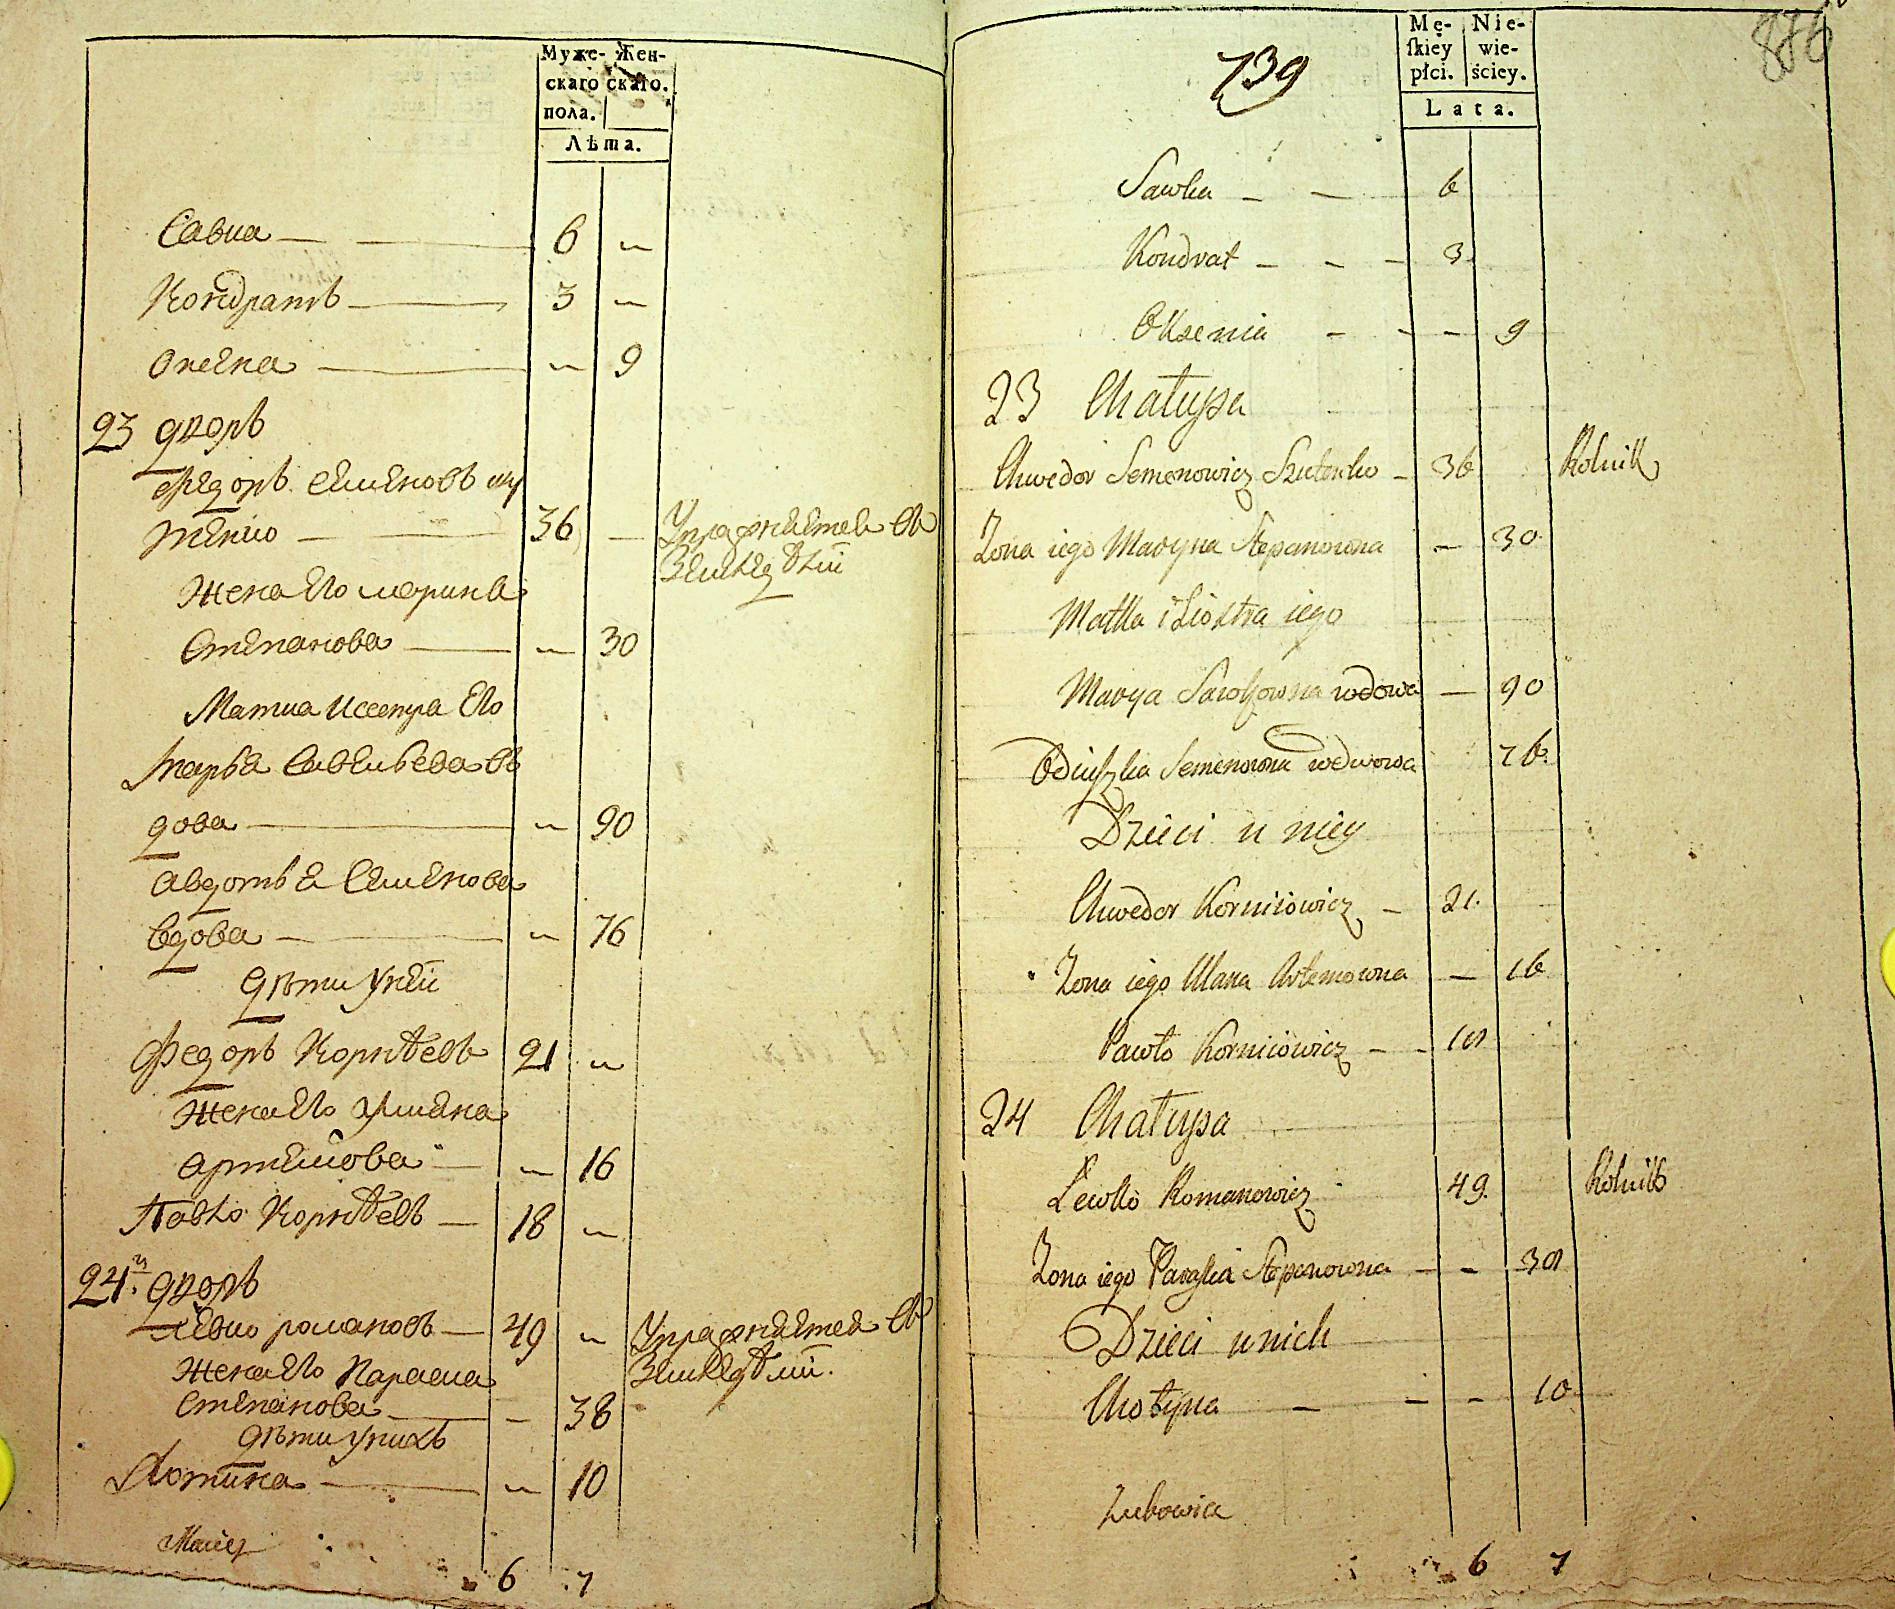 Муже- Жен-
скаго скаго.
пола.
Лѣта.
Савка — — 6 „
Кондратъ — 3 „
Оксена — „ 9
23 дворъ
Федоръ Семеновъ Шу
тенко — — 36 — Упражняется въ
земледѣлии
Жена Его Марина
Степанова — „ 30
Матка и сестра Его
Марья Савельева въ
дова — „ 90
Авдотья Семенова
вдова — „ 76
Дѣти у ней
Федоръ Корнѣевъ 21 „
Жена Его Ульяна
Артемова — „ 16
Павло Корнѣевъ — 18 „
24й дворъ
Левко Романовъ — 49 „ Упражняется въ
земледѣлии.
Жена Его Параска
Степанова — — 38
Дѣти у нихъ
Хотина — „ 10
Maciey
6 7
886
739
Mę- Nie-
ſkiey wie-
płci. ściey.
Lata.
Sawka — — 6
Kondrat — — — 3
Oksenia — — — 9
23 Chałupa
Chwedor Semenowicz Szutenko — 36 Rolnik
Zona iego Maryna Stepanowna — 30
Matka i Siostra iego
Marya Sawczowna wdowa — 90
Odiuszka Semenowna wdwowa 76
Dzieci u niey
Chwedor Korniiowicz — 21.
Zona iego Ulana Artemowna — 16
Pawło Korniiowicz — — 18
24 Chałupa
Lewko Romanowicz 49. Rolnik
Zona iego Paraska Stepanowna — — 38
Dzieci u nich
Chotyna — — — 10
Zubowicz
6 7